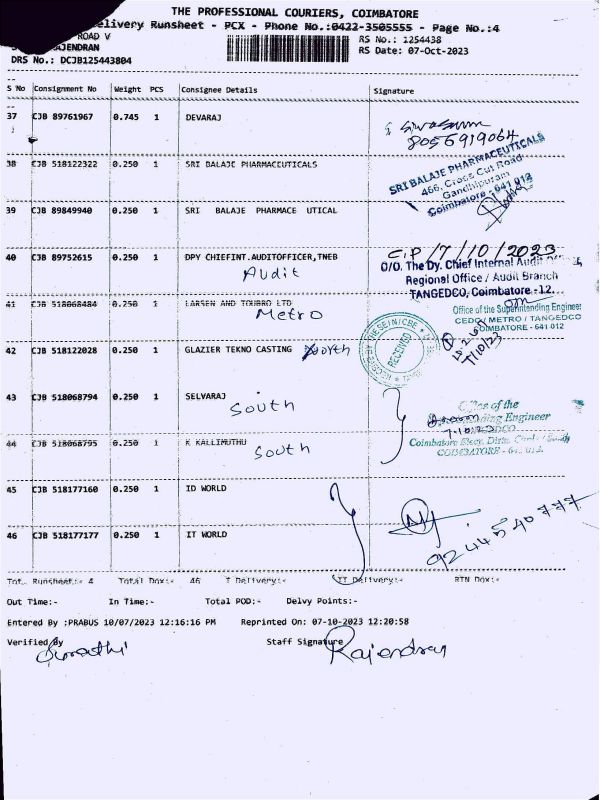 THE PROFESSIONAL COURIERS, COIMBATORE
elivery Runsheet - PCX - Phone No.:0422-3505555 - Page No.:4
ROAD V
RS No.: 1254438
AJENDRAN
RS Date: 07-Oct-2023
DRS No.: DCJB125443804
S No Consignment No Weight PCS Consignee Details Signature
37 CJB 89761967 0.745 1 DEVARAJ
8056919064
38 CJB 518122322 0.250 1 SRI BALAJE PHARMACEUTICALS
SRI BALAJE PHARMACEUTICALS
466, Cross Cut Road
Gandhipuram
Coimbatore - 641 012
39 CJB 89849940 0.250 1 SRI BALAJE PHARMACE UTICAL
40 CJB 89752615 0.250 1 DPY CHIEFINT.AUDITOFFICER,TNEB
Audit
7/10/2023
O/O. The Dy. Chief Internal Audit
Regional Office / Audit Branch
TANGEDCO, Coimbatore -12.
41 CJB 518068484 0.250 1 LARSEN AND TOUBRO LTD
Metro
Office of the Superintending Engineer
CEDC/ METRO / TANGEDCO
COIMBATORE - 641 012
RECEIVED
7/10/23
42 CJB 518122028 0.250 1 GLAZIER TEKNO CASTING North
43 CJB 518068794 0.250 1 SELVARAJ
South
Office of the
Engineer
44 CJB 518068795 0.250 1 K KALLIMUTHU
South
Coimbatore Elecy. Distn. Circle / South
COIMBATORE - 641 012.
45 CJB 518177160 0.250 1 ID WORLD
46 CJB 518177177 0.250 1 IT WORLD
9244540777
Tot. Runsheet:- 4 Total Dox:- 46 T Delivery:- TT Delivery:- RTN Dox:-
Out Time:- In Time:- Total POD:- Delvy Points:-
Entered By :PRABUS 10/07/2023 12:16:16 PM Reprinted On: 07-10-2023 12:20:58
Verified By Staff Signature
Rajendran